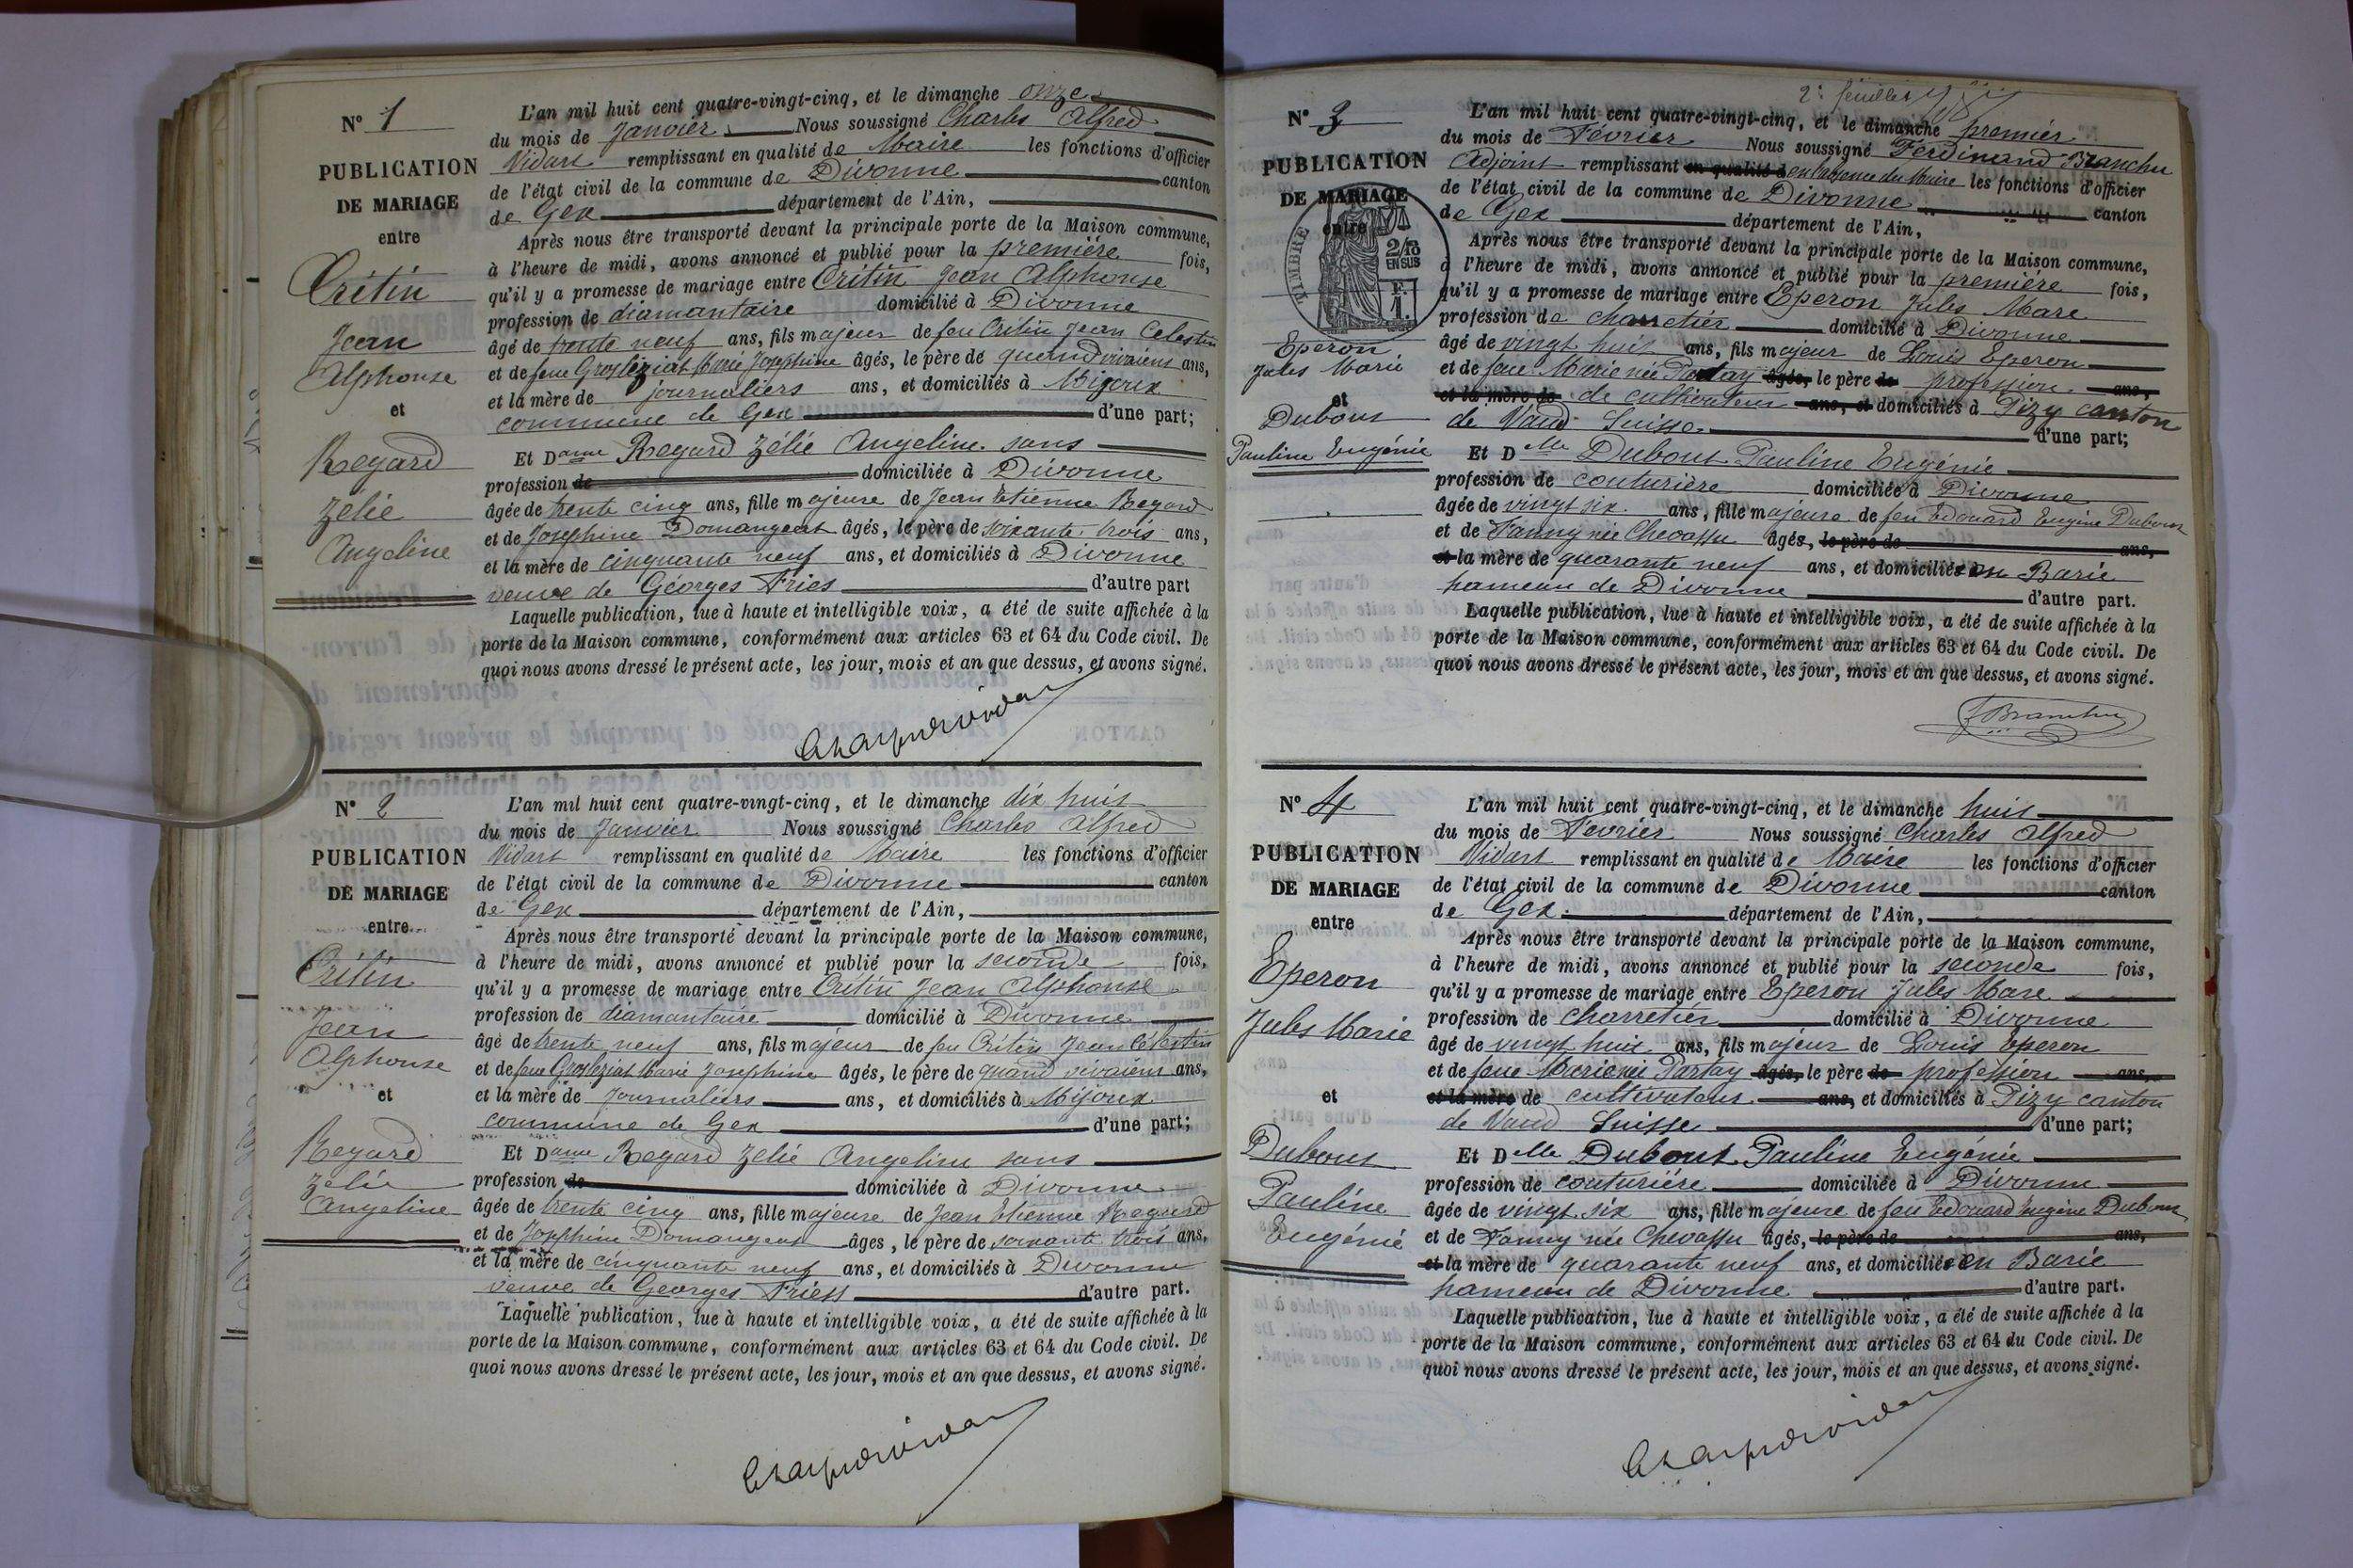 N° 1
PUBLICATION
DE MARIAGE
entre
Critin
Jean
Alphonse
et
Regard
Zélie
Angeline
L'an mil huit cent quatre-vingt-cinq, et le dimanche onze
du mois de Janvier Nous soussigné Charles Alfred
Vidart remplissant en qualité de Maire les fonctions d'officier
de l'état civil de la commune de Divonne canton
de Gex département de l'Ain,
Après nous être transporté devant la principale porte de la Maison commune,
à l'heure de midi, avons annoncé et publié pour la première fois,
qu'il y a promesse de mariage entre Critin Jean Alphonse
profession de diamantaire domicilié à Divonne
âgé de trente neuf ans, fils majeur de feu Critin Jean Celestin
et de feue Grosléziat Marie Josephine âgés, le père de quand vivaient ans,
et la mère de journaliers ans, et domiciliés à Mijoux
commune de Gex d'une part;
Et Dame Regard Zélie Angeline sans
profession de domiciliée à Divonne
âgée de trente cinq ans, fille majeure de Jean Etienne Regard
et de Josephine Domangeat âgés, le père de soixante trois ans,
et la mère de cinquante neuf ans, et domiciliés à Divonne
veuve de Géorges Friess d'autre part
Laquelle publication, lue à haute et intelligible voix, a été de suite affichée à la
porte de la Maison commune, conformément aux articles 63 et 64 du Code civil. De
quoi nous avons dressé le présent acte, les jour, mois et an que dessus, et avons signé.
N° 2
PUBLICATION
DE MARIAGE
entre
Critin
Jean
Alphonse
et
Regard
Zélie
Angeline
L'an mil huit cent quatre-vingt-cinq, et le dimanche dix huit
du mois de Janvier Nous soussigné Charles Alfred
Vidart remplissant en qualité de Maire les fonctions d'officier
de l'état civil de la commune de Divonne canton
de Gex département de l'Ain,
Après nous être transporté devant la principale porte de la Maison commune,
à l'heure de midi, avons annoncé et publié pour la seconde fois,
qu'il y a promesse de mariage entre Critin Jean Alphonse
profession de diamantaire domicilié à Divonne
âgé de trente neuf ans, fils majeur de feu Critin Jean Célestin
et de feue Grosléziat Marie Josephine âgés, le père de quand vivaient ans,
et la mère de Journaliers ans, et domiciliés à Mijoux
commune de Gex d'une part;
Et Dame Regard Zélie Angeline sans
profession de domiciliée à Divonne
âgée de trente cinq ans, fille majeure de Jean Etienne Regard
et de Josephine Domangeat âges, le père de soixante trois ans,
et la mère de cinquante neuf ans, et domiciliés à Divonne
veuve de Georges Friess d'autre part.
Laquelle publication, lue à haute et intelligible voix, a été de suite affichée à la
porte de la Maison commune, conformément aux articles 63 et 64 du Code civil. De
quoi nous avons dressé le présent acte, les jour, mois et an que dessus, et avons signé.
2e feuillet
N° 3
PUBLICATION
DE MARIAGE
entre
TIMBRE
2/10
EN SUS
F.
1.
Eperon
Jules Marie
et
Dubout
Pauline Eugénie
L'an mil huit cent quatre-vingt-cinq, et le dimanche premier
du mois de Février Nous soussigné Ferdinand Branchu
Adjoint remplissant en qualité d en l'absence du Maire les fonctions d'officier
de l'état civil de la commune de Divonne canton
de Gex département de l'Ain,
Après nous être transporté devant la principale porte de la Maison commune,
à l'heure de midi, avons annoncé et publié pour la première fois,
qu'il y a promesse de mariage entre Eperon Jules Marc
profession de charretier domicilié à Divonne
âgé de vingt huit ans, fils majeur de Louis Eperon
et de feue Marie née Partay âgés, le père de profession ans,
et la mère de de cultivateur ans, et domiciliés à Pizy canton
de Vaud Suisse d'une part;
Et Delle Dubout Pauline Eugénie
profession de couturière domiciliée à Divonne
âgée de vingt six ans, fille majeure de feu Edouard Eugène Dubout
et de Fanny née Chevassu âgés, le père de ans,
et la mère de quarante neuf ans, et domiciliés en Barie
hameau de Divonne d'autre part.
Laquelle publication, lue à haute et intelligible voix, a été de suite affichée à la
porte de la Maison commune, conformément aux articles 63 et 64 du Code civil. De
quoi nous avons dressé le présent acte, les jour, mois et an que dessus, et avons signé.
FBranchu
N° 4
PUBLICATION
DE MARIAGE
entre
Eperon
Jules Marie
et
Dubout
Pauline
Eugénie
L'an mil huit cent quatre-vingt-cinq, et le dimanche huit
du mois de Février Nous soussigné Charles Alfred
Vidart remplissant en qualité de Maire les fonctions d'officier
de l'état civil de la commune de Divonne canton
de Gex département de l'Ain,
Après nous être transporté devant la principale porte de la Maison commune,
à l'heure de midi, avons annoncé et publié pour la seconde fois,
qu'il y a promesse de mariage entre Eperon Jules Marc
profession de charretier domicilié à Divonne
âgé de vingt huit ans, fils majeur de Louis Eperon
et de feue Marie née Partay âgés, le père de profession ans,
et la mère de cultivateur ans, et domiciliés à Pizy canton
de Vaud Suisse d'une part;
Et Delle Dubout Pauline Eugénie
profession de couturière domiciliée à Divonne
âgée de vingt six ans, fille majeure de feu Edouard Eugène Dubout
et de Fanny née Chevassu âgés, le père de ans,
et la mère de quarante neuf ans, et domiciliés en Barie
hameau de Divonne d'autre part.
Laquelle publication, lue à haute et intelligible voix, a été de suite affichée à la
porte de la Maison commune, conformément aux articles 63 et 64 du Code civil. De
quoi nous avons dressé le présent acte, les jour, mois et an que dessus, et avons signé.